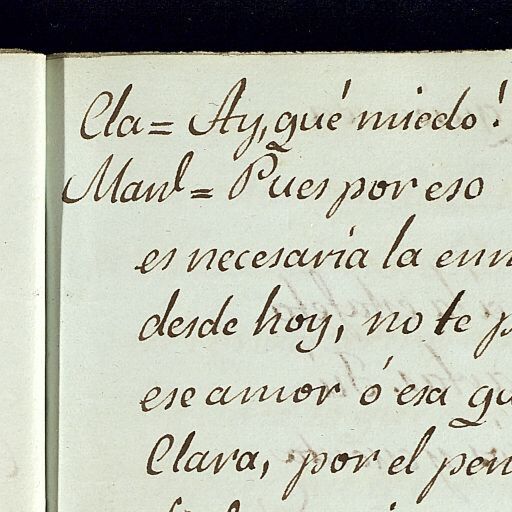 Cla = Ay, qué miedo!
Manl = Pues por eso
es necesaria la enm
desde hoy, no te p
ese amor ó esa qu
Clara, por el pen